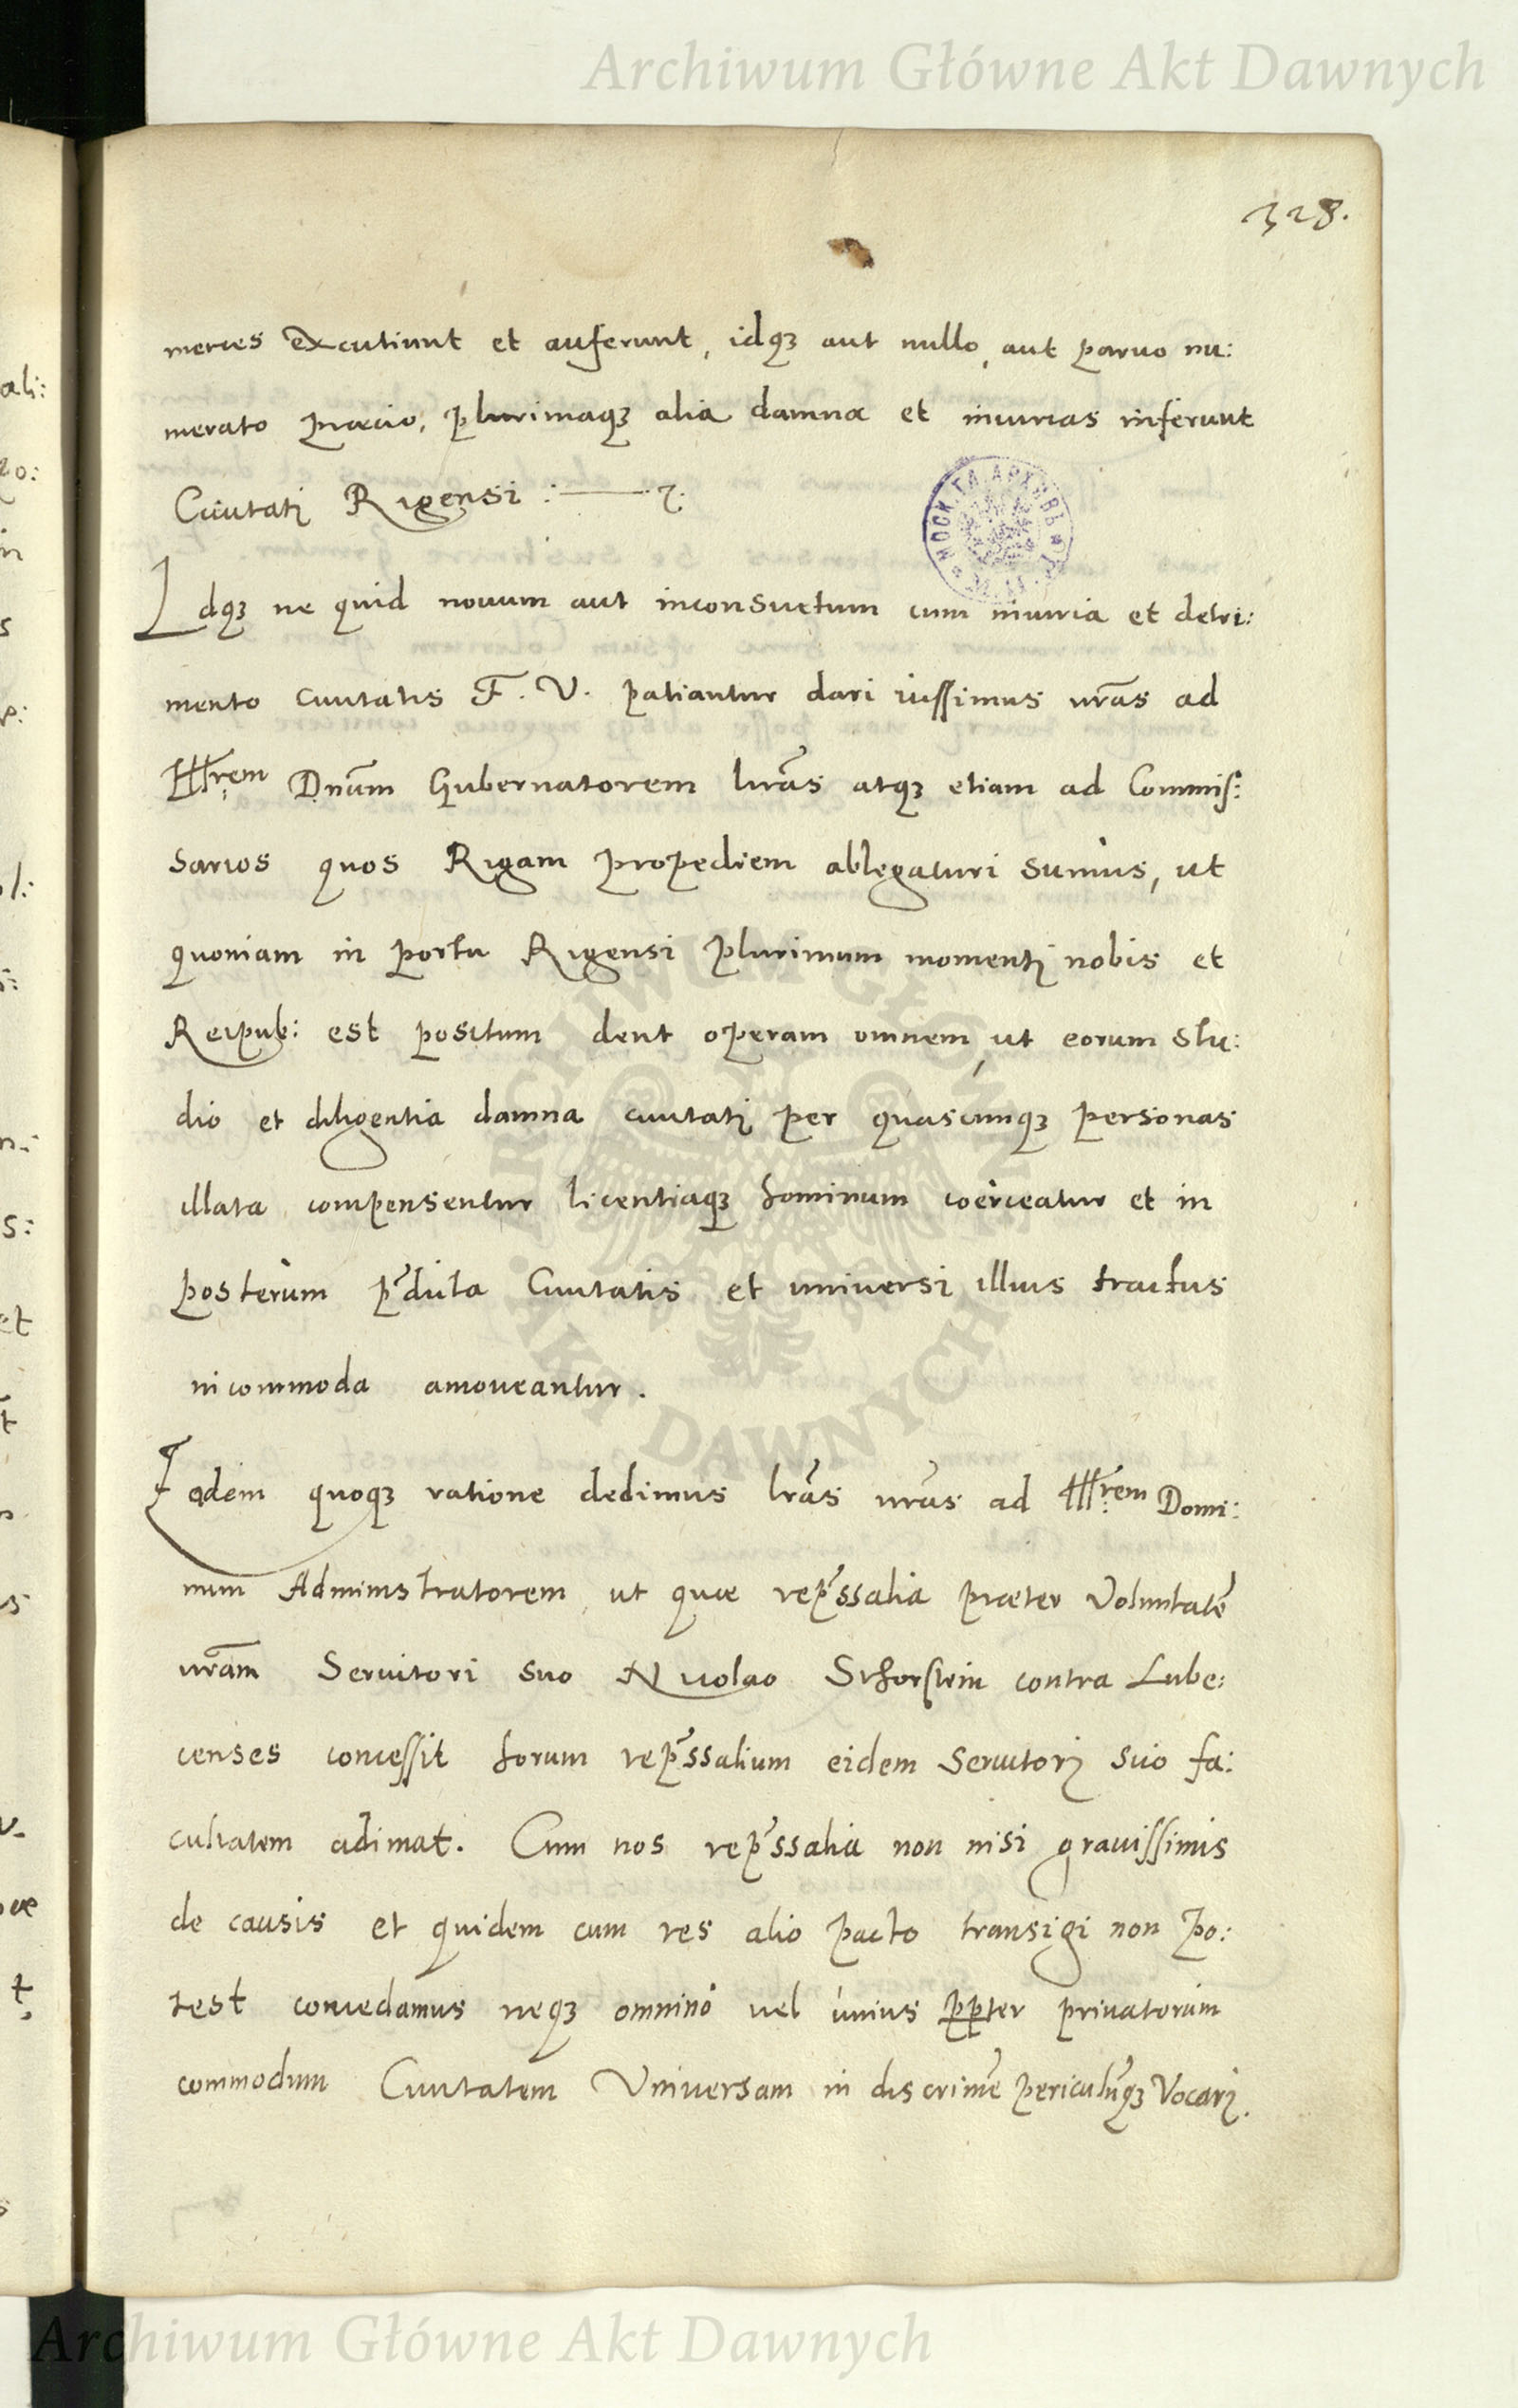 Archiwum Główne Akt Dawnych
328.
merces excutiunt et auferunt, idqȝ aut nullo, aut paruo nu:
merato præcio, plurimaqȝ alia damna et iniurias inferunt
Ciuitati Rigensi :
Idqȝ ne quid nouum aut inconsuetum cum iniuria et detri:
mento ciuitatis F. V. patiantur dari iussimus nr̃as ad
Illrem Dnũm Gubernatorem lr̃as atqȝ etiam ad Commis:
sarios quos Rigam propediem ablegaturi sumus, ut
quoniam in portu Rigensi plurimum momenti nobis et
Reipub: est positum dent operam omnem, ut eorum stu:
dio et diligentia damna ciuitati per quascunqȝ personas
illata compensentur licentiaqȝ hominum coerceatur et in
posterum p̃dicta Ciuitatis et universi illius tractus
incommoda amoveantur.
Eadem quoqȝ ratione dedimus lr̃as nr̃as ad Illrem Domi:
num Administratorem ut quæ rep̃ssalia præter Voluntatẽ
nr̃am Seruitori suo Nicolao contra Lube:
censes concessit horum rep̃ssalium eidem Seruitori suo fa:
cultatem adimat. Cum nos rep̃ssalia non nisi grauissimis
de causis et quidem cum res alio pacto transigi non po:
test concedamus neqȝ omnino vel unius ꝓpter privatorum
commodum Ciuitatem Vniversam in discrimẽ periculũqȝ Vocari.
ARCHIWUM GŁÓWNE AKT DAWNYCH
Archiwum Główne Akt Dawnych